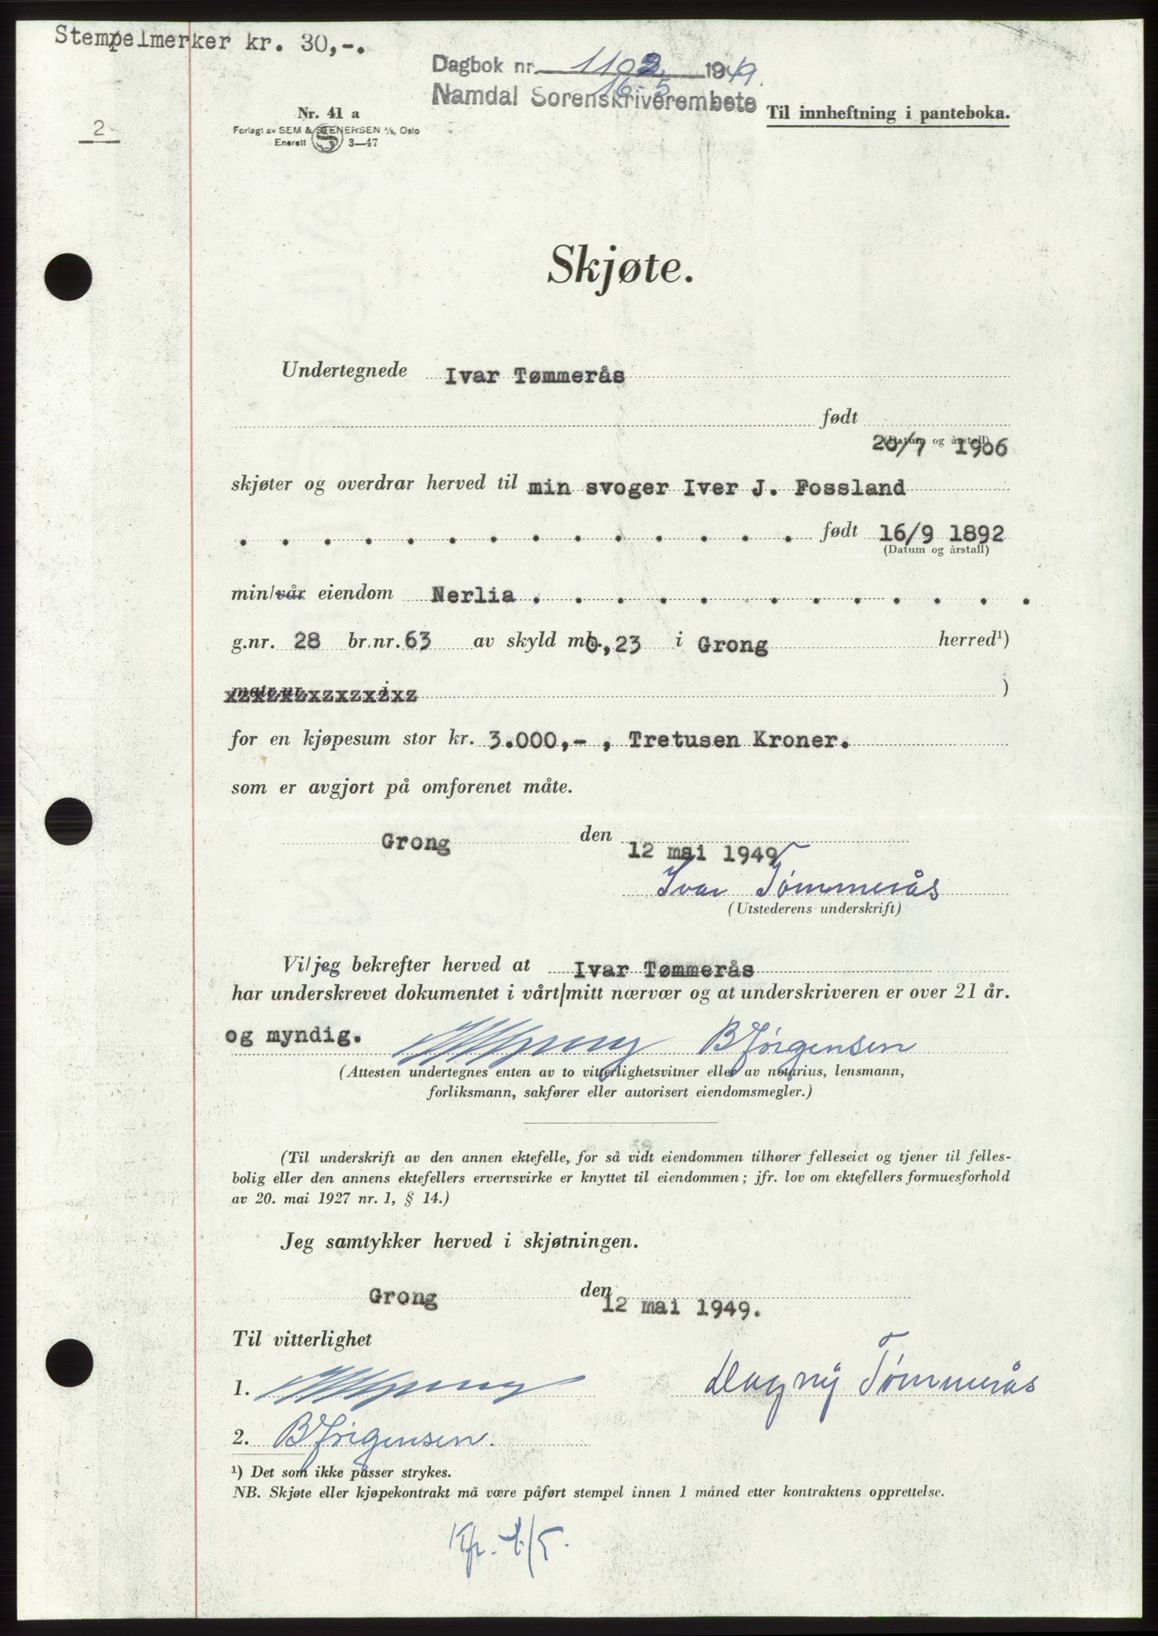 Stempelmerker kr. 30,-.
Dagbok nr. 1102 1949.
16-5
Namdal Sorenskriverembete
Til innheftning i panteboka.
Nr. 41 a
Forlagt av SEM & STENERSEN A/S, Oslo
Enerett S 3—47
2
Skjøte.
Undertegnede Ivar Tømmerås
født
20/7 1906
(Datum og årstall)
skjøter og overdrar herved til min svoger Iver J. Fossland
. . . . . . . . . . . . . . født 16/9 1892
(Datum og årstall)
min/vår eiendom Nerlia . . . . . . . . . . . .
g.nr. 28 br.nr. 63 av skyld mk. 0,23 i Grong herred¹)
matr.nr. i )
for en kjøpesum stor kr. 3.000,- , Tretusen Kroner.
som er avgjort på omforenet måte.
Grong den 12 mai 1949
Ivar Tømmerås
(Utstederens underskrift)
Vi/jeg bekrefter herved at Ivar Tømmerås
har underskrevet dokumentet i vårt/mitt nærvær og at underskriveren er over 21 år.
og myndig. BJørgensen
(Attesten undertegnes enten av to vitterlighetsvitner eller av notarius, lensmann,
forliksmann, sakfører eller autorisert eiendomsmegler.)
(Til underskrift av den annen ektefelle, for så vidt eiendommen tilhører felleseiet og tjener til felles-
bolig eller den annens ektefellers ervervsvirke er knyttet til eiendommen; jfr. lov om ektefellers formuesforhold
av 20. mai 1927 nr. 1, § 14.)
Jeg samtykker herved i skjøtningen.
Grong den 12 mai 1949.
Til vitterlighet
1. Dagny Tømmerås
2. BJørgensen.
¹) Det som ikke passer strykes.
NB. Skjøte eller kjøpekontrakt må være påført stempel innen 1 måned etter kontraktens opprettelse.